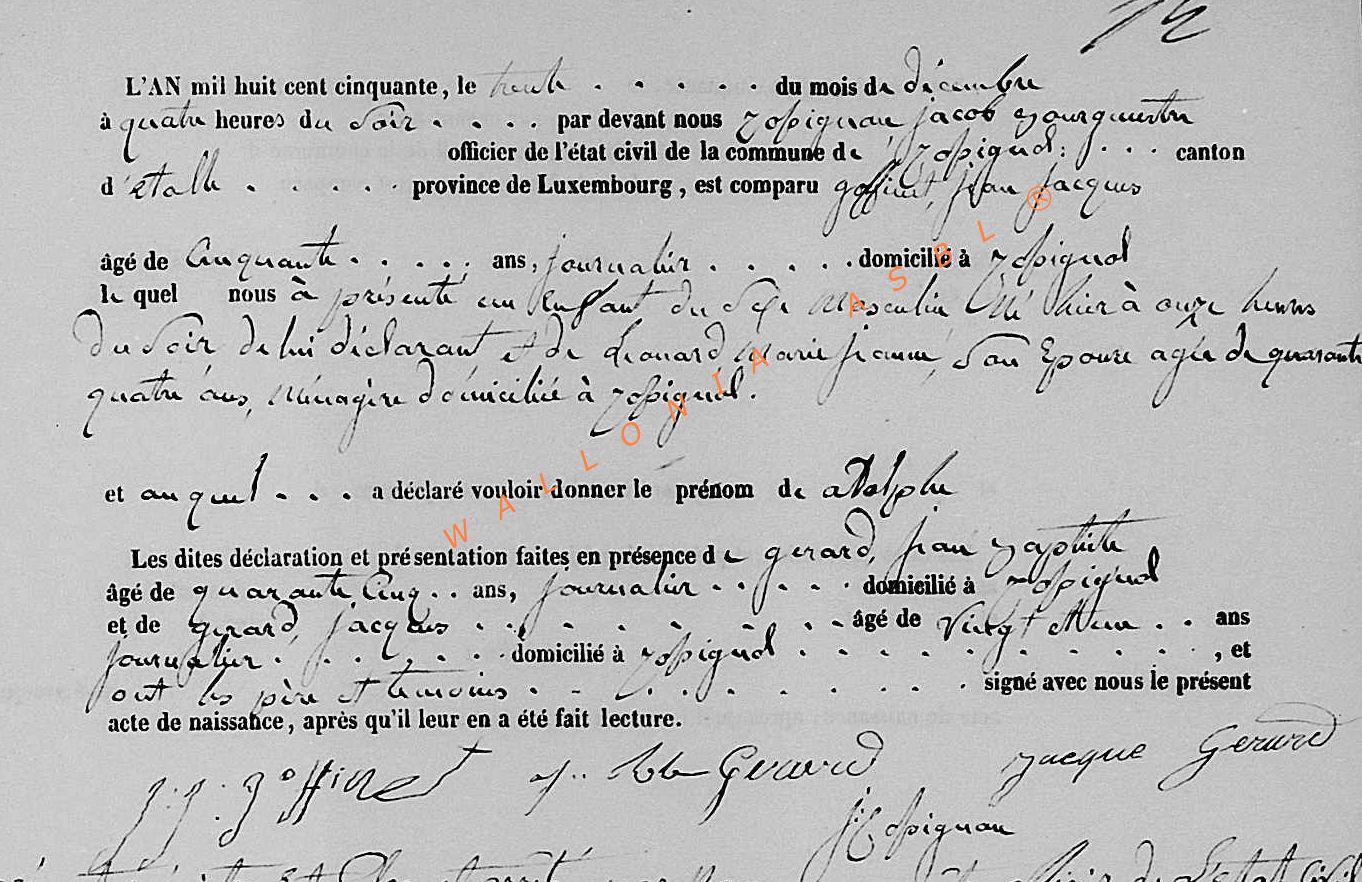 12
L'AN mil huit cent cinquante, le trente . . . . . . du mois de décembre
à quatre heures du Soir . . . . par devant nous jacob Bourgmestre
officier de l'état civil de la commune de . . . canton
d'étalle . . . . . province de Luxembourg, est comparu goffinet, jean jacques
âgé de Cinquante . . . . . ans, journalier . . . . . domicilié à
le quel nous à présenté un Enfant du Sexe Masculin Né hier à onze heures
du Soir de lui déclarant et de Léonard Marie jeanne, Son Epouse agée de quarante
quatre ans, Ménagère domiciliée à
et au quel . . . a déclaré vouloir donner le prénom de adolphe
Les dites déclaration et présentation faites en présence de gerard, jean baptiste
âgé de quarante Cinq . . ans, journalier . . . . . domicilié à
et de gerard, jacques . . . . . . . . âgé de Vingt Neuf . . ans
journalier . . . . . . domicilié à . . . . . . . . . , et
ont les père et temoins . . . . . . . . . signé avec nous le présent
acte de naissance, après qu'il leur en a été fait lecture.
j. j. goffinet j. Bte Gerard jacque Gerard
WALLONIA ASBL ®